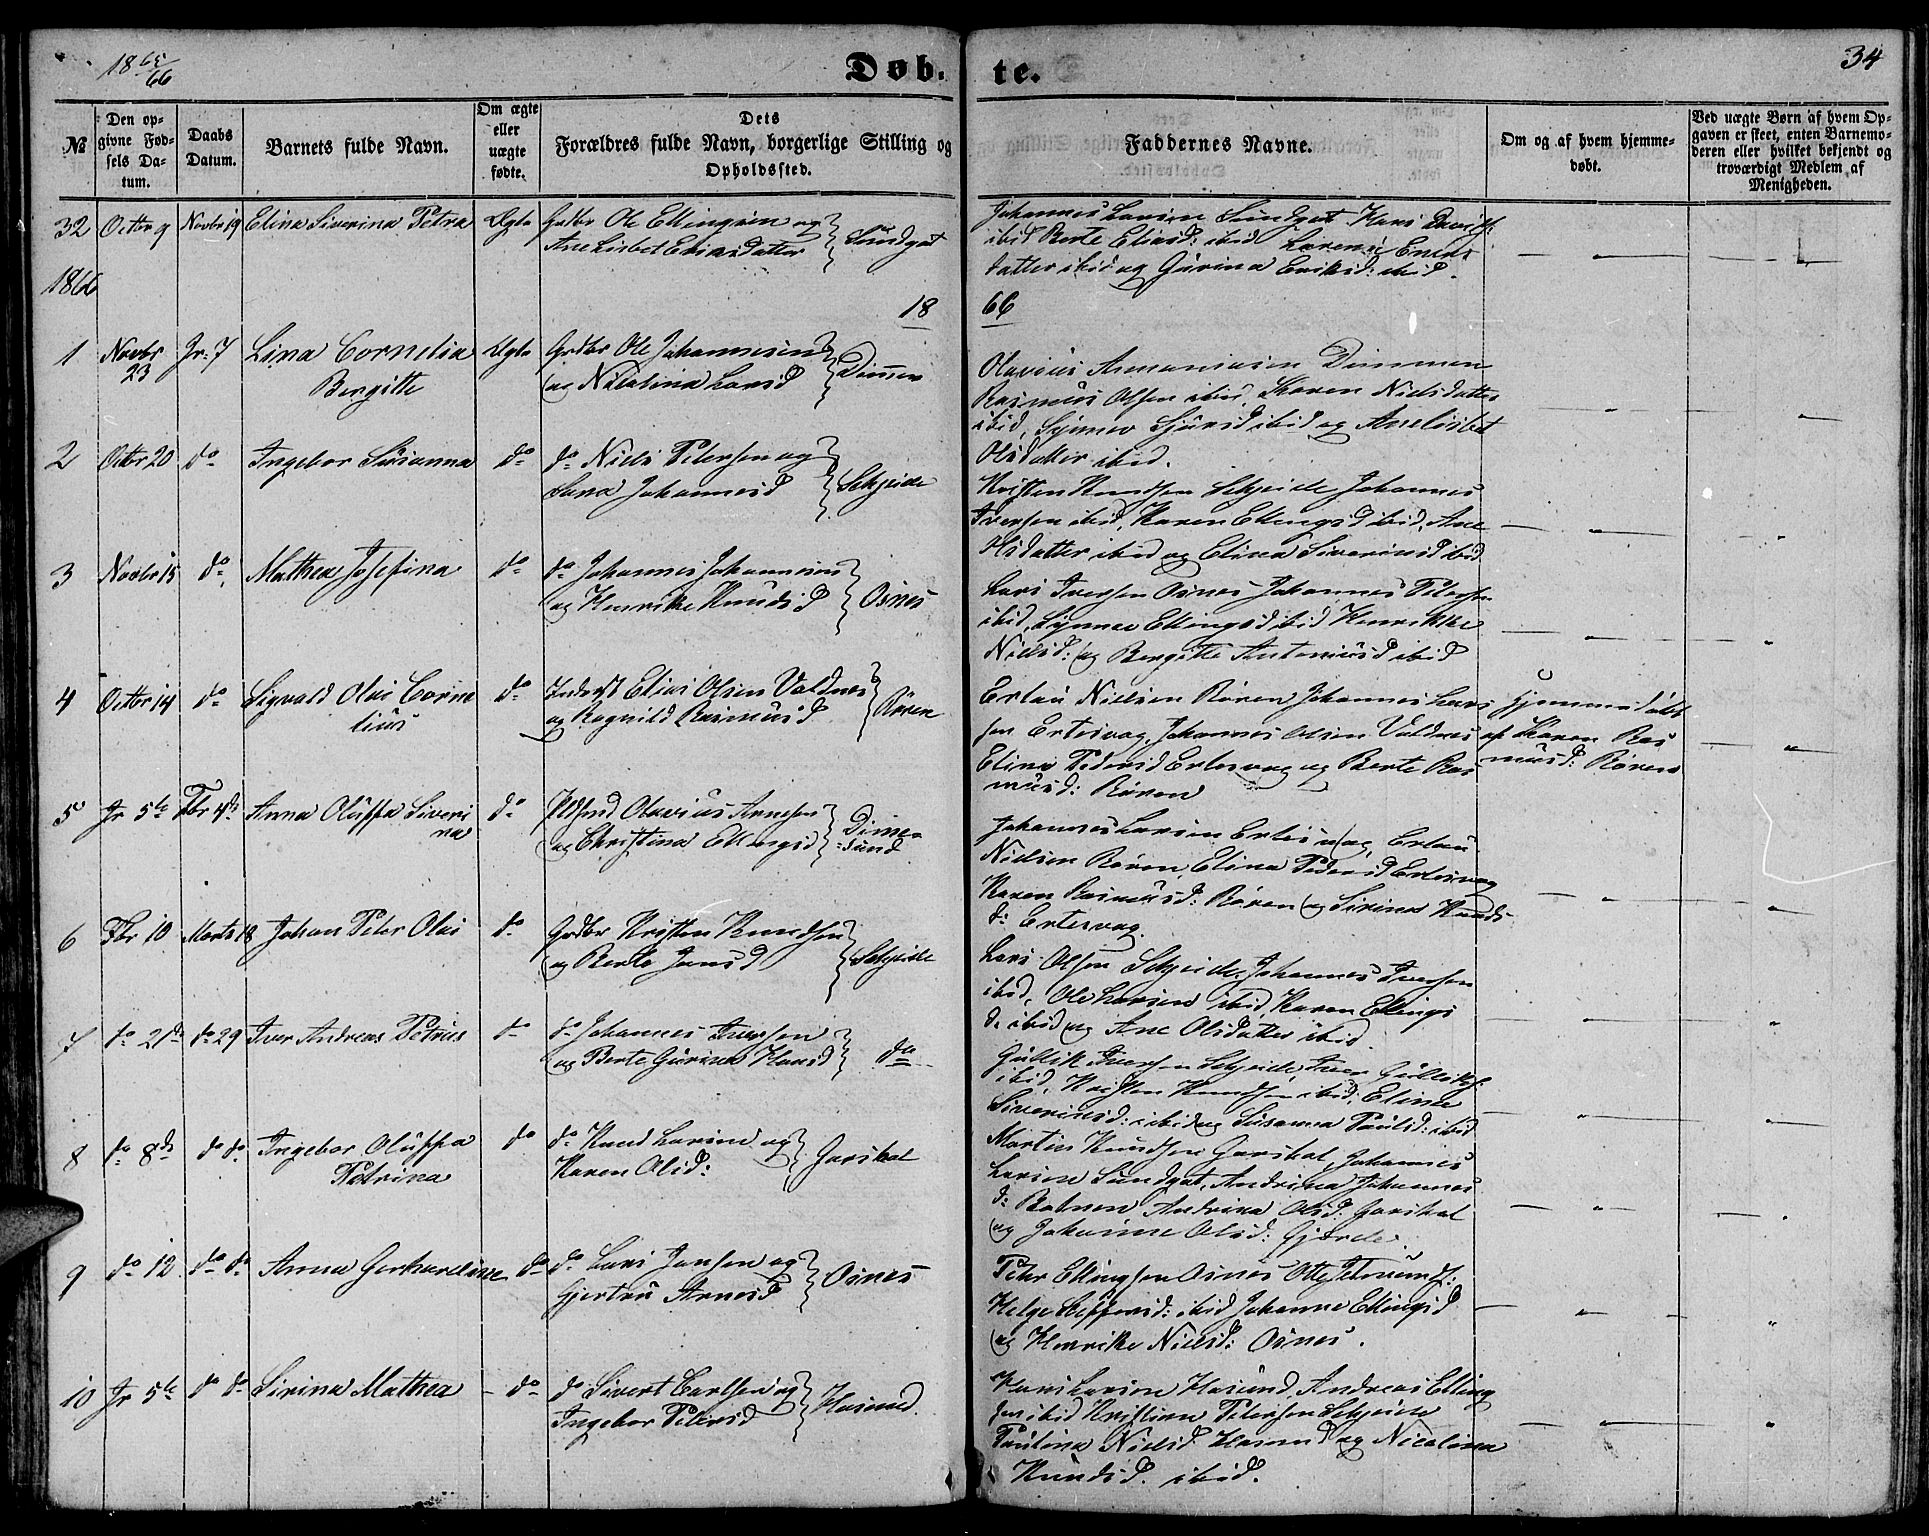 18 65/66
Døb. te.
34
№
Den op-
givne Fød-
sels Da-
tum.
Daabs
Datum.
Barnets fulde Navn.
Om ægte
eller
uægte
fødte.
Dets
Forældres fulde Navn, borgerlige Stilling og
Opholdssted.
Faddernes Navne.
Om og af hvem hjemme-
døbt.
Ved uægte Børn af hvem Op-
gaven er skeet, enten Barnemo-
deren eller hvilket bekjendt og
troværdigt Medlem af
Menigheden.
32 Octbr 9 Novbr 19 Elina Siverina Petra Ægte Gdbr Ole Ellingsen og
Ane Lisbet Eriksdatter Sundgot
Johannes Larsen Sundgot Hans Davids:
ibid Berte Eliasd: ibid
datter ibid og Gurina Eriksd: ibid.
1866
18 66
1 Novbr 23 Jr: 7 Lina Cornelia
Bergitte Ægte Grdbr Ole Johannesen
og Nicolina Larsd Dimen
Olavius Dimmen
Rasmus Olsen ibid, Karen Nielsdatter
ibid, Synnev Sjursd ibid og Anelisbet
Olsdatter ibid.
2 Octbr 20 do Ingebor Susanna do do Niels Petersen og
Johannesd Skjeide
Kristen Knudsen Skjeide Johannes
Iversen ibid, Karen Ellingsd ibid, Ane
Olsdatter ibid og Elina Siverinsd ibid
3 Novbr 15 do Mathea Josefina do do Johannes Johannesen
og Henrike Knudsd Osnes
Lars Iversen Osnes Johannes Petersen
ibid, Synnev Ellingsd ibid Henrikke
Nielsd: og Bergitte Antoniusd ibid
4 Octbr 14 do Sigvald Olai Corne
lius do Inderst Elias Olsen Valdnes
og Ragnild Rasmusd Røren
Erlau Nielsen Røren Johannes Lars
sen Ertesvag, Johannes Olsen Valdnes
Elina Pedersd Ertesvag og Berte Ras
musd: Røren
Hjemmedøbt
af Karen Ras
musd: Røren
5 Jr 5te Fbr 4de Anna Oluffa Siveri
na do Olavius Arnesen
og Christina Ellingsd Dimen
sund
Johannes Larsen Ertesvag, Erlau
Nielsen Røren, Elina Pedersd Ertesvag
Karen Rasmusd: Røren og Sirina Knuds
d: Ertesvag.
6 Fbr 10 Marts 18 Johan Peter Olai do Grdbr Kristen Knudsen
og Berte Jensd Skjeide
Lars Olsen Skjeide, Johannes Iversen
ibid, Ole Larsen ibid, Karen Ellings
d. ibid og Ane Olsdatter ibid.
7 do 21de do 29 Iver Andreas Petrus do do Johannes Iversen
og Berte Gurine Hansd do
Gullik Iversen Skjeide, Iver Gulliks:
ibid, Kristen Knudsen ibid, Elina
Siverinsd: ibid og Susanna Paulsd: ibid
8 do 8de do do Ingebor Oluffa
Petrina do do Knud Larsen og
Karen Olsd: Garshol
Martin Knudsen Garshol, Johannes
Larsen Sundgot, Andrina Johannes
d: Andrina Olsd: Garshol
og Johanne Olsd: Gjerde.
9 do 12 do do Anna Gerhardine do do Lars Jensen og
Gjertru Arnesd Osnes
Peter Ellingsen Osnes Otte
Helge Steffensd: ibid Johanne Ellingsd
og Henrike Nielsd: Osnes.
10 Jr 5te do do Sirina Mathea do do Sivert Carlsen og
Ingebor Petersd Hasund.
Hans Larsen Hasund, Andreas Elling
sen ibid Kristian Petersen Skjeide
Paulina Nielsd Hasund og Nicolina
Knudsd. ibid.